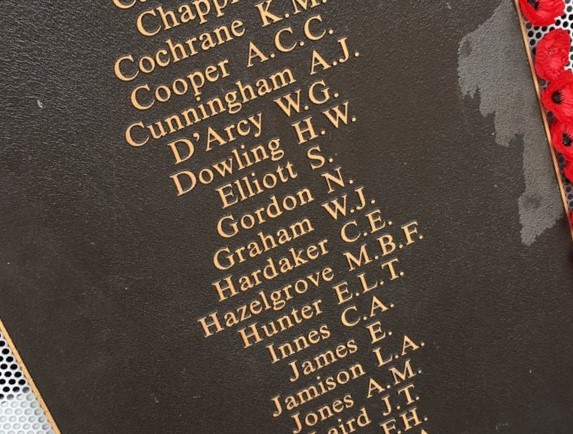 Cochrane K.M.
Cooper A.C.C.
Cunningham A.J.
D'Arcy W.G.
Dowling H.W.
Elliott S.
Gordon N.
Graham W.J.
Hardaker C.E.
Hazelgrove M.B.F.
Hunter E.L.T.
Innes C.A.
James E.
Jamison L.A.
Jones A.M.
J.T.
F.H.